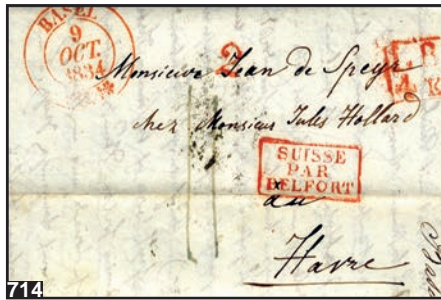 BASEL
9
OCT.
1834
2
Monsieur Jean de Speyr
chez Monsieur Jules Hollard
SUISSE
PAR
BELFORT
au
Havre
714